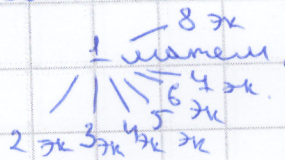 8 эк
1 матем
7 эк.
6 эк
5 эк
2 эк 3 эк 4 эк